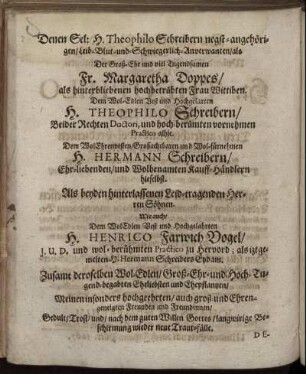 Denen Sel: H. Theophilo Schreibern negst-angehöri-
gen/Leib-Blut-und-Schwiegerlich-Anverwanten/als
Der Groß-Ehr und viel Tugendsamen
Fr. Margaretha Doppes/
als hinterbliebenen hochbetrübten Frau Wittiben.
Dem Wol-Edlen Vest und Hochgelarten
H. THEOPHILO Schreibern/
Beider Rechten Doctori, und hoch berümten vornehmen
Practico alhie.
Dem Wol Ehrenvesten Großachtbaren und Wol-fürnehmen
H. HERMANN Schreibern/
Ehr-liebenden/ und Wolbenamten Kauff-Händlern
hieselbst.
Als beyden hinterlassenen Leid-tragenden Her-
ren Söhnen.
Wie auch/
Dem Wol Edlen Vest und Hochgelahrten
H. HENRICO Farwich Vogel/
J. U. D. und wol-berühmten Practico zu Hervord; als itzge-
melten-H. Herman Schreibers Eydam;
Zusamt deroselben Wol-Edlen/ Groß-Ehr-und Hoch-Tu-
gend-begabten Eheliebsten und Ehepflantzen/
Meinen insonders hochgeehrten/ auch groß und Ehren-
geneigten Freunden und Freundinnen/
Gedult/Trost/ und/ nach dem guten Willen Gottes/ langwirige Be-
schirmung wieder neue Traur-fälle.
DE-